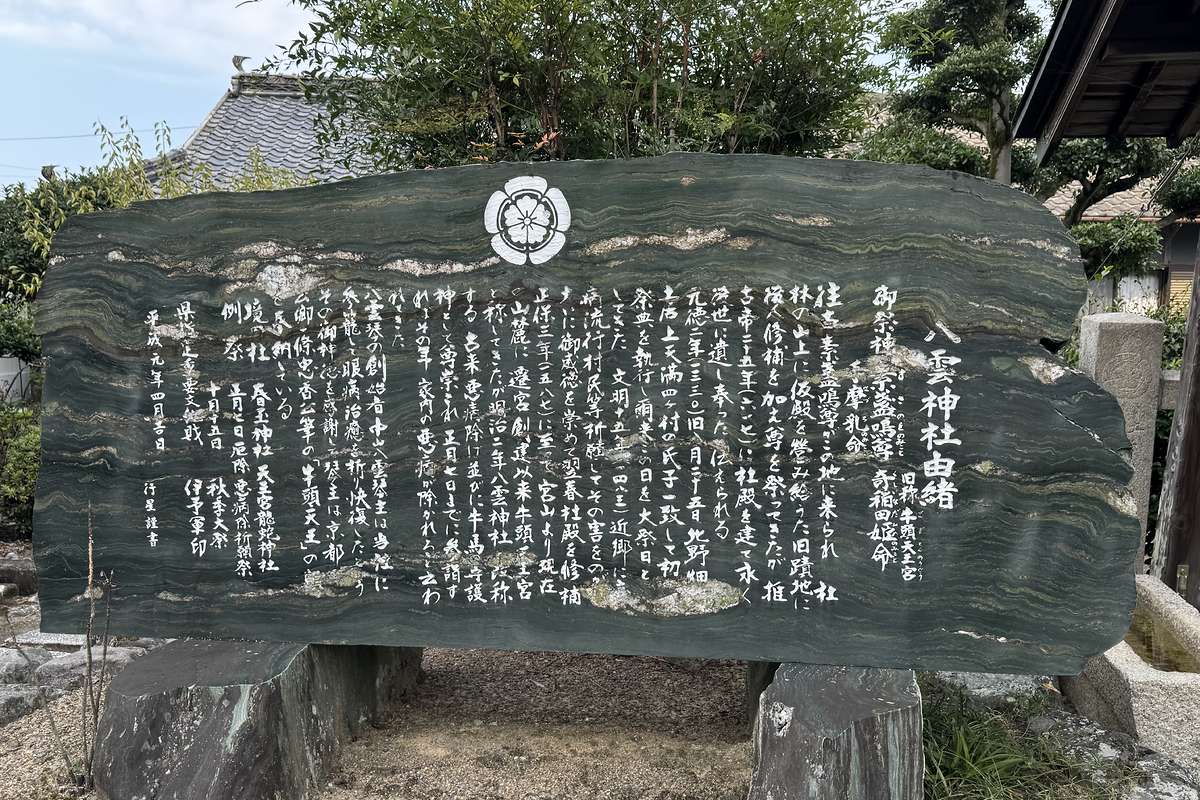 八雲神社由緒
旧称 牛頭天王宮
御祭神 素盞嗚尊 奇稲田媛命
摩乳命
往古素盞嗚尊この地に来られ 杜
林の山上に仮殿を営み給うた旧蹟地に
後人修補を加え尊を祭ってきたが 推
古帝二十五年(六一七)に社殿を建て永く
後世に遺し奉ったと伝えられる
元徳二年(一三三〇)旧八月二十五日北野畑
上石上天満四ヶ村の氏子一致して初
祭典を執行し爾来この日を大祭日と
してきた 文明十五年(一四八三)近郷に
病流行村民等祈願してその害をのが
大いに御威徳を崇めて翌春社殿を修補
正保三年 に至って宮山より現在
山麓に遷宮創建以来牛頭天王宮
と称してきたが明治二年八雲神社と改称
する 古来悪病除け並びに牛馬守護
神として尊崇され 正月七日までに参詣す
ればその年 家内の悪病が除かれると云わ
れてきた
八雲琴の創始者中山八雲琴主は当社に
参籠して眼病治癒を祈り快復した
その御神徳を感謝して琴主は京都
公卿 侍 香公筆の「牛頭天王」の
を奉納している
境内社 春王神社 天王宮龍蛇神社
例祭 正月七日厄除 悪病除祈願祭
十月十五日 秋季大祭
県指定重要文化財 伊予軍印
平成元年四月吉日 行星謹書